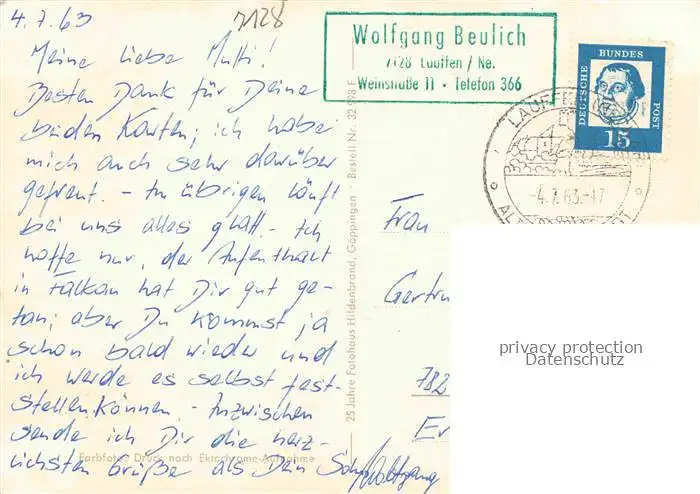 4.7.63
7128
Meine liebe Mutti!
Besten Dank für Deine
beiden Karten; ich habe
mich auch sehr darüber
gefreut. - Im übrigen läuft
bei uns alles glatt. - Ich
hoffe nur, der Aufenthalt
in Falkau hat Dir gut ge-
tan; aber Du kommst ja
schon bald wieder und
ich werde es selbst fest-
stellen können. - Inzwischen
sende ich Dir die herz-
lichsten Grüße als Dein Sohn Wolfgang
Farbfoto: Druck nach Ektachrome-Aufnahme
25 Jahre Fotohaus Hildenbrand, Göppingen · Bestell Nr. 32
Wolfgang Beulich
7128 Lauffen / Ne.
Weinstraße 11 · Telefon 366
DEUTSCHE
BUNDES
POST
15
LAUFFEN
-4.7.63.-17
Frau
Gertru
782
Er
privacy protection
Datenschutz